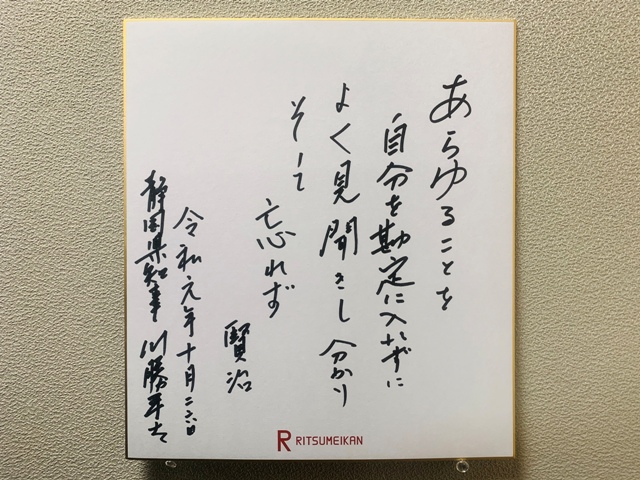 あらゆることを
自分を勘定に入れずに
よく見聞きし分かり
そして
忘れず
賢治
令和元年十月二六日
静岡県知事 川勝平太
RITSUMEIKAN